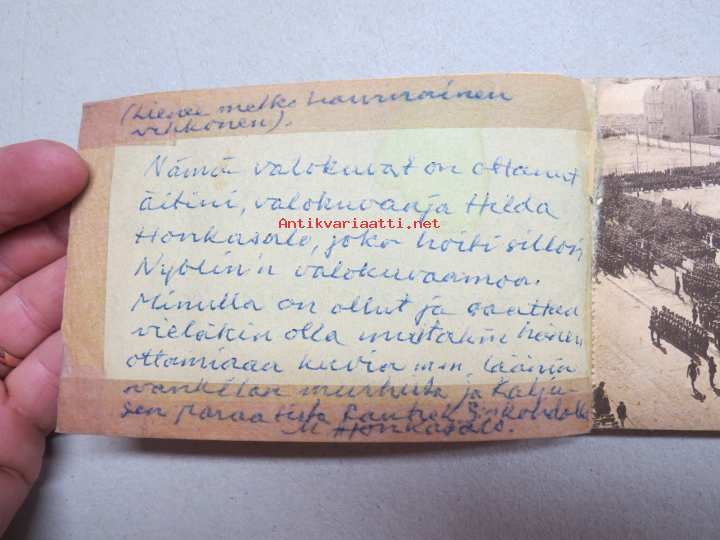 (Lienee melko harvinainen
vihkonen).
Nämä valokuvat on ottanut
äitini, valokuvaaja Hilda
Antikvariaatti.net
Honkasalo, joka hoiti silloin
Nyblin'n valokuvaamoa.
Minulla on ollut ja saattaa
vieläkin olla muutakin hänen
ottamiaan kuvia m.m. läänin
vankilan murhista ja
sen paraatista
M Honkasalo.